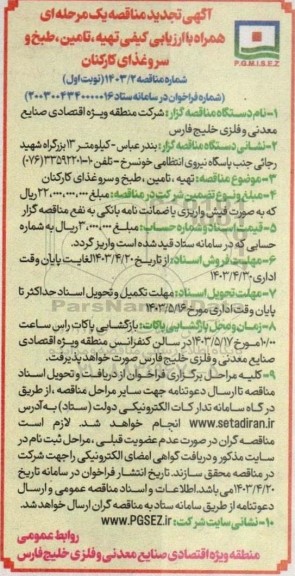 آگهی تجدید مناقصه یک مرحله ای
همراه با ارزیابی کیفی تهیه، تامین، طبخ و
سرو غذای کارکنان
شماره مناقصه ۱۴۰۳/۲ (نوبت اول)
(شماره فراخوان در سامانه ستاد ۲۰۰۳۰۰۴۳۴۰۰۰۰۰۱۶)
P.G.M.I.S.E.Z
۱- نام دستگاه مناقصه گزار: شرکت منطقه ویژه اقتصادی صنایع
معدنی و فلزی خلیج فارس
۲- نشانی دستگاه مناقصه گزار: بندر عباس - کیلومتر ۱۳ بزرگراه شهید
رجائی جنب پاسگاه نیروی انتظامی خونسرخ - تلفن ۱۰-۳۳۵۹۲۲۰۱ (۰۷۶)
۳- موضوع مناقصه: تهیه، تامین، طبخ و سرو غذای کارکنان
۴- مبلغ و نوع تضمین شرکت در مناقصه: مبلغ ۲۲,۰۰۰,۰۰۰,۰۰۰ ریال
که به صورت فیش واریزی یا ضمانت نامه بانکی به نفع مناقصه گزار
۵- قیمت اسناد و شماره حساب: مبلغ ۳,۰۰۰,۰۰۰ ریال به شماره
حسابی که در سامانه ستاد قید شده است واریز گردد.
۶- مهلت فروش اسناد: از تاریخ ۱۴۰۳/۴/۲۰ لغایت پایان وقت
اداری ۱۴۰۳/۴/۳۰
۷- مهلت تحویل اسناد: مهلت تکمیل و تحویل اسناد حداکثر تا
پایان وقت اداری مورخ ۱۴۰۳/۵/۱۶
۸- زمان و محل بازگشایی پاکات: بازگشایی پاکات راس ساعت
۱۰/۰۰ مورخ ۱۴۰۳/۵/۱۷ در سالن کنفرانس منطقه ویژه اقتصادی
صنایع معدنی و فلزی خلیج فارس صورت خواهد پذیرفت.
۹- کلیه مراحل برگزاری فراخوان از دریافت و تحویل اسناد
مناقصه تا ارسال دعوتنامه جهت سایر مراحل مناقصه، از طریق
درگاه سامانه تدارکات الکترونیکی دولت (ستاد) به آدرس
www.setadiran.ir انجام خواهد شد. لازم است
مناقصه گران در صورت عدم عضویت قبلی، مراحل ثبت نام در
سایت مذکور و دریافت گواهی امضای الکترونیکی را جهت شرکت
در مناقصه محقق سازند. تاریخ انتشار فراخوان در سامانه تاریخ
۱۴۰۳/۴/۲۰ می باشد. اطلاعات و اسناد مناقصه عمومی و ارسال
دعوتنامه از طریق سامانه ستاد به مناقصه گران ارسال خواهد شد.
۱۰- نشانی سایت شرکت: www.PGSEZ.ir
روابط عمومی
منطقه ویژه اقتصادی صنایع معدنی و فلزی خلیج فارس